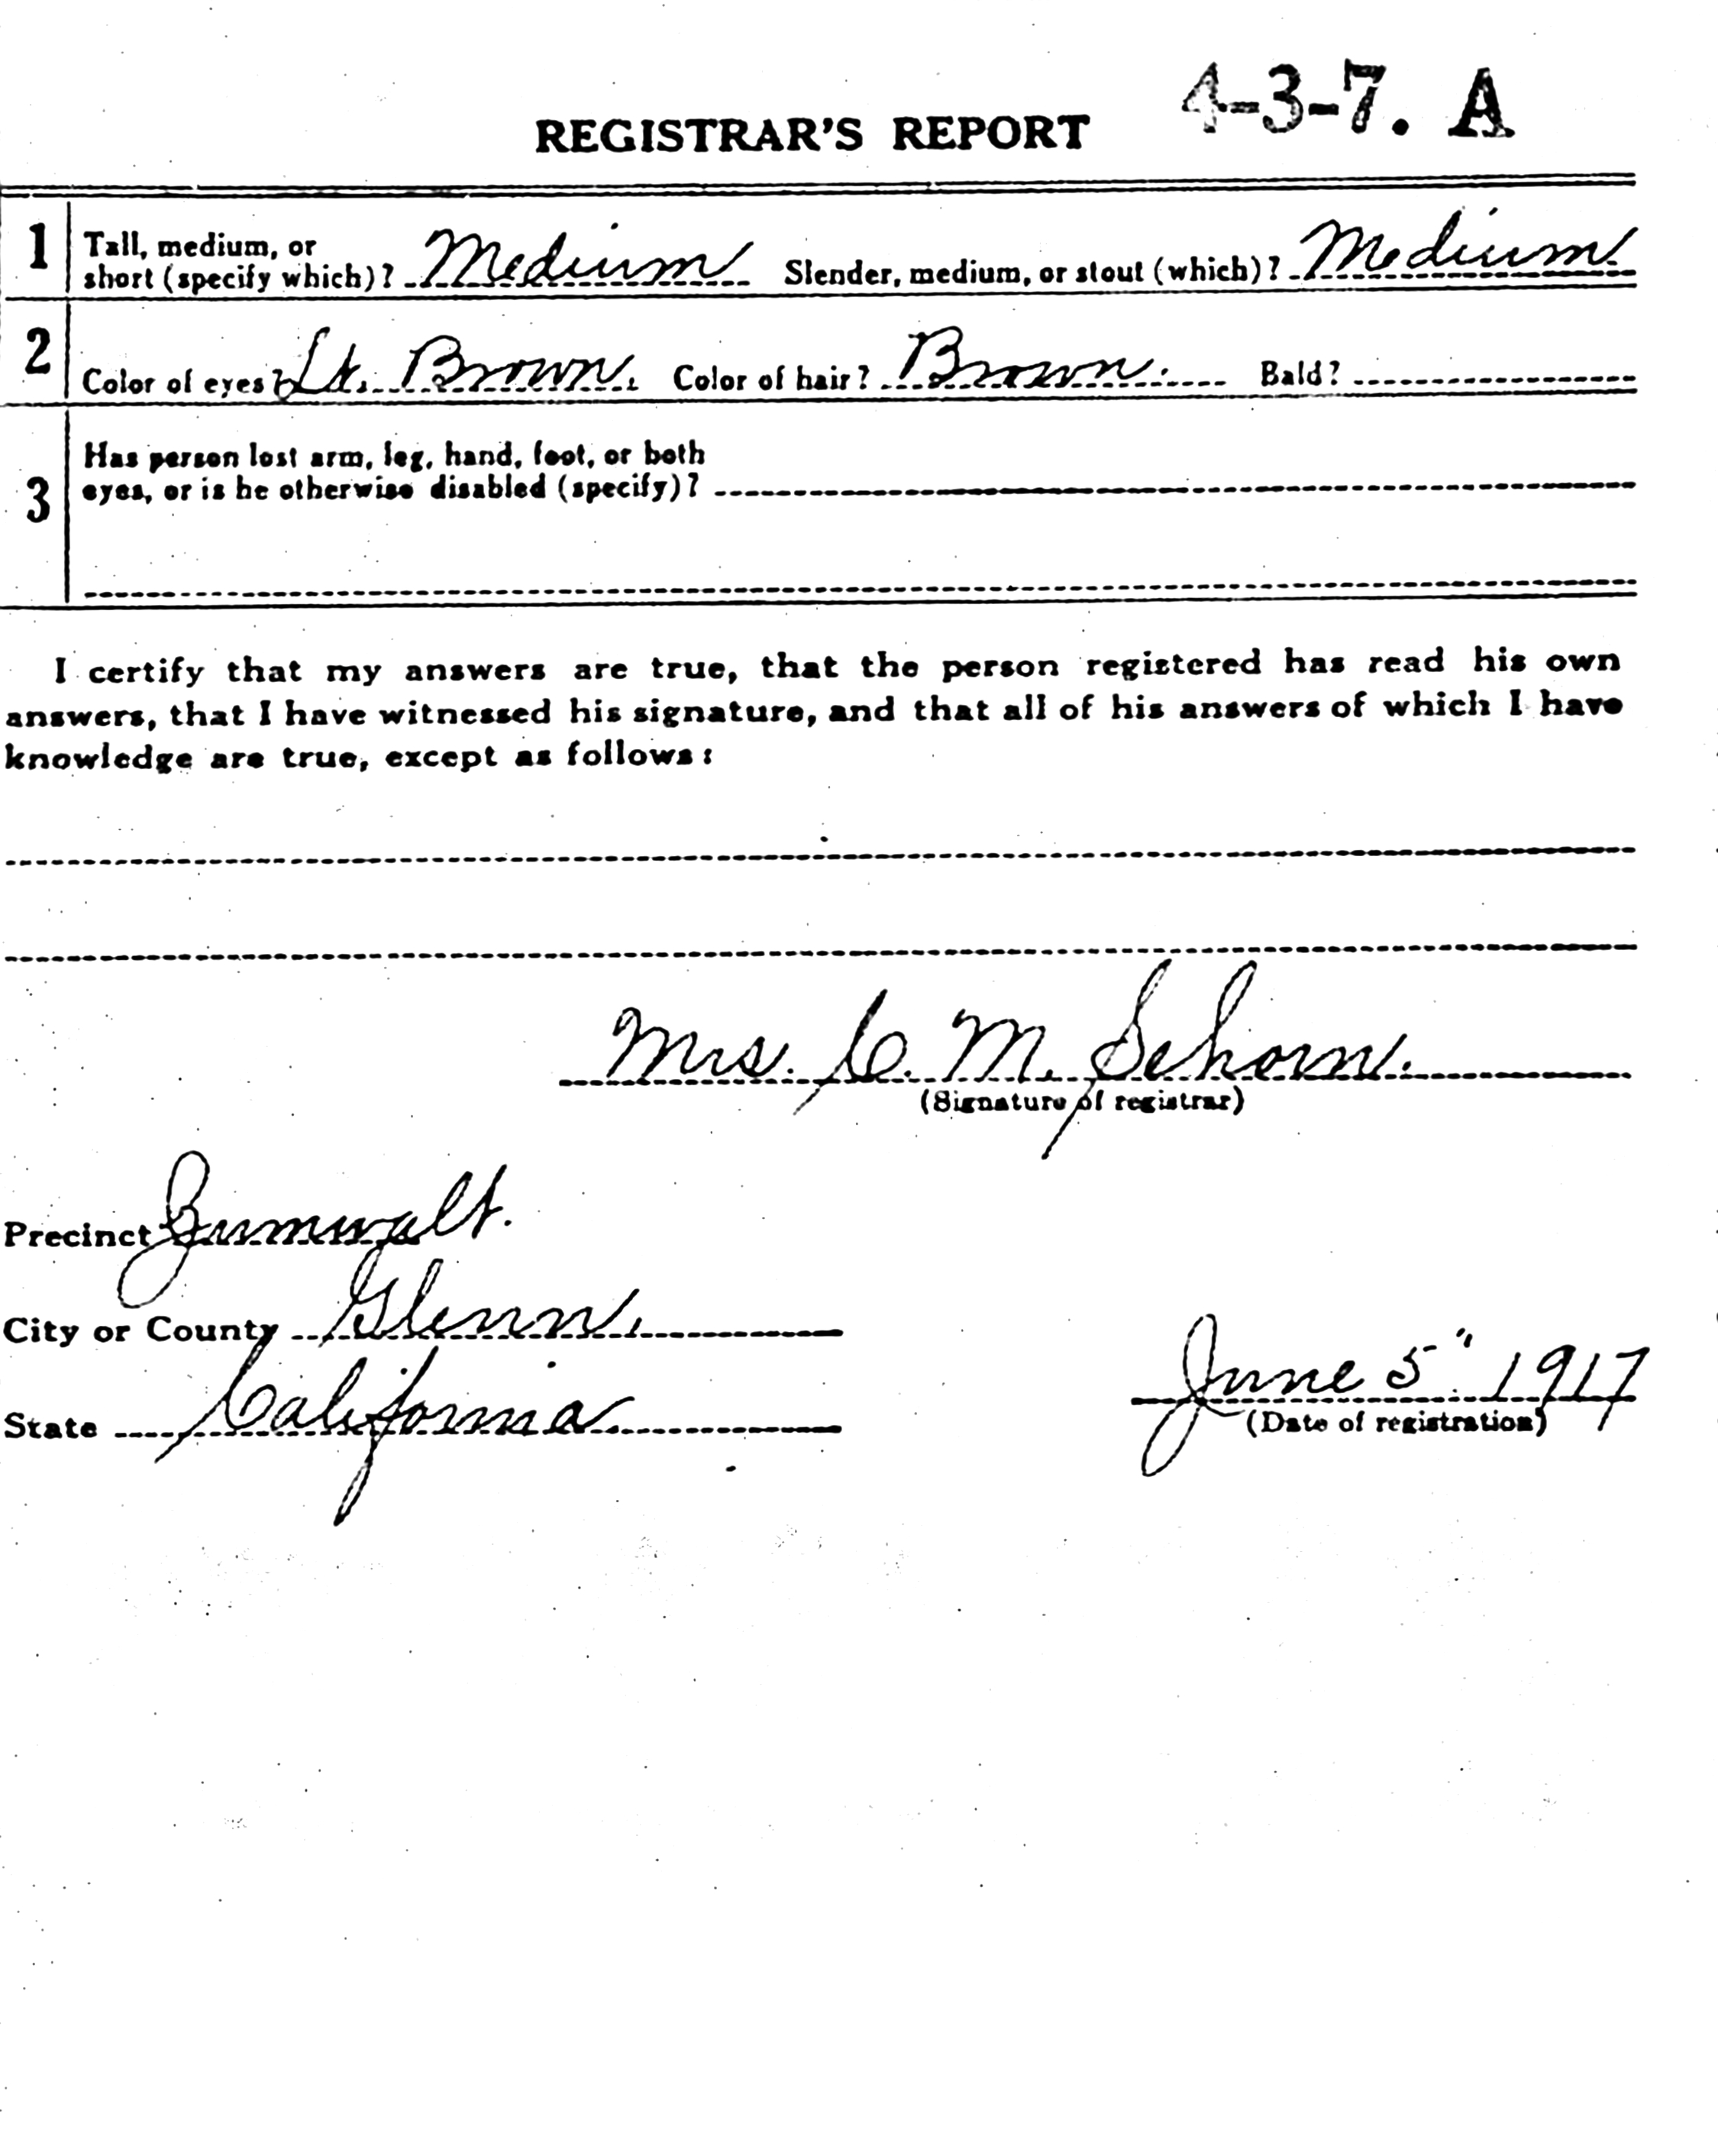 REGISTRAR'S REPORT 4-3-7. A
1 Tall, medium, or
short (specify which)? Medium Slender, medium, or stout (which)? Medium
2 Color of eyes? Lt. Brown. Color of hair? Brown. Bald?
Has person lost arm, leg, hand, foot, or both
3 eyes, or is he otherwise disabled (specify)?
I certify that my answers are true, that the person registered has read his own
answers, that I have witnessed his signature, and that all of his answers of which I have
knowledge are true, except as follows:
Mrs. C. M. Sehorn.
(Signature of registrar)
Precinct Zumwalt.
City or County Glenn.
State California June 5" 1917
(Date of registration)